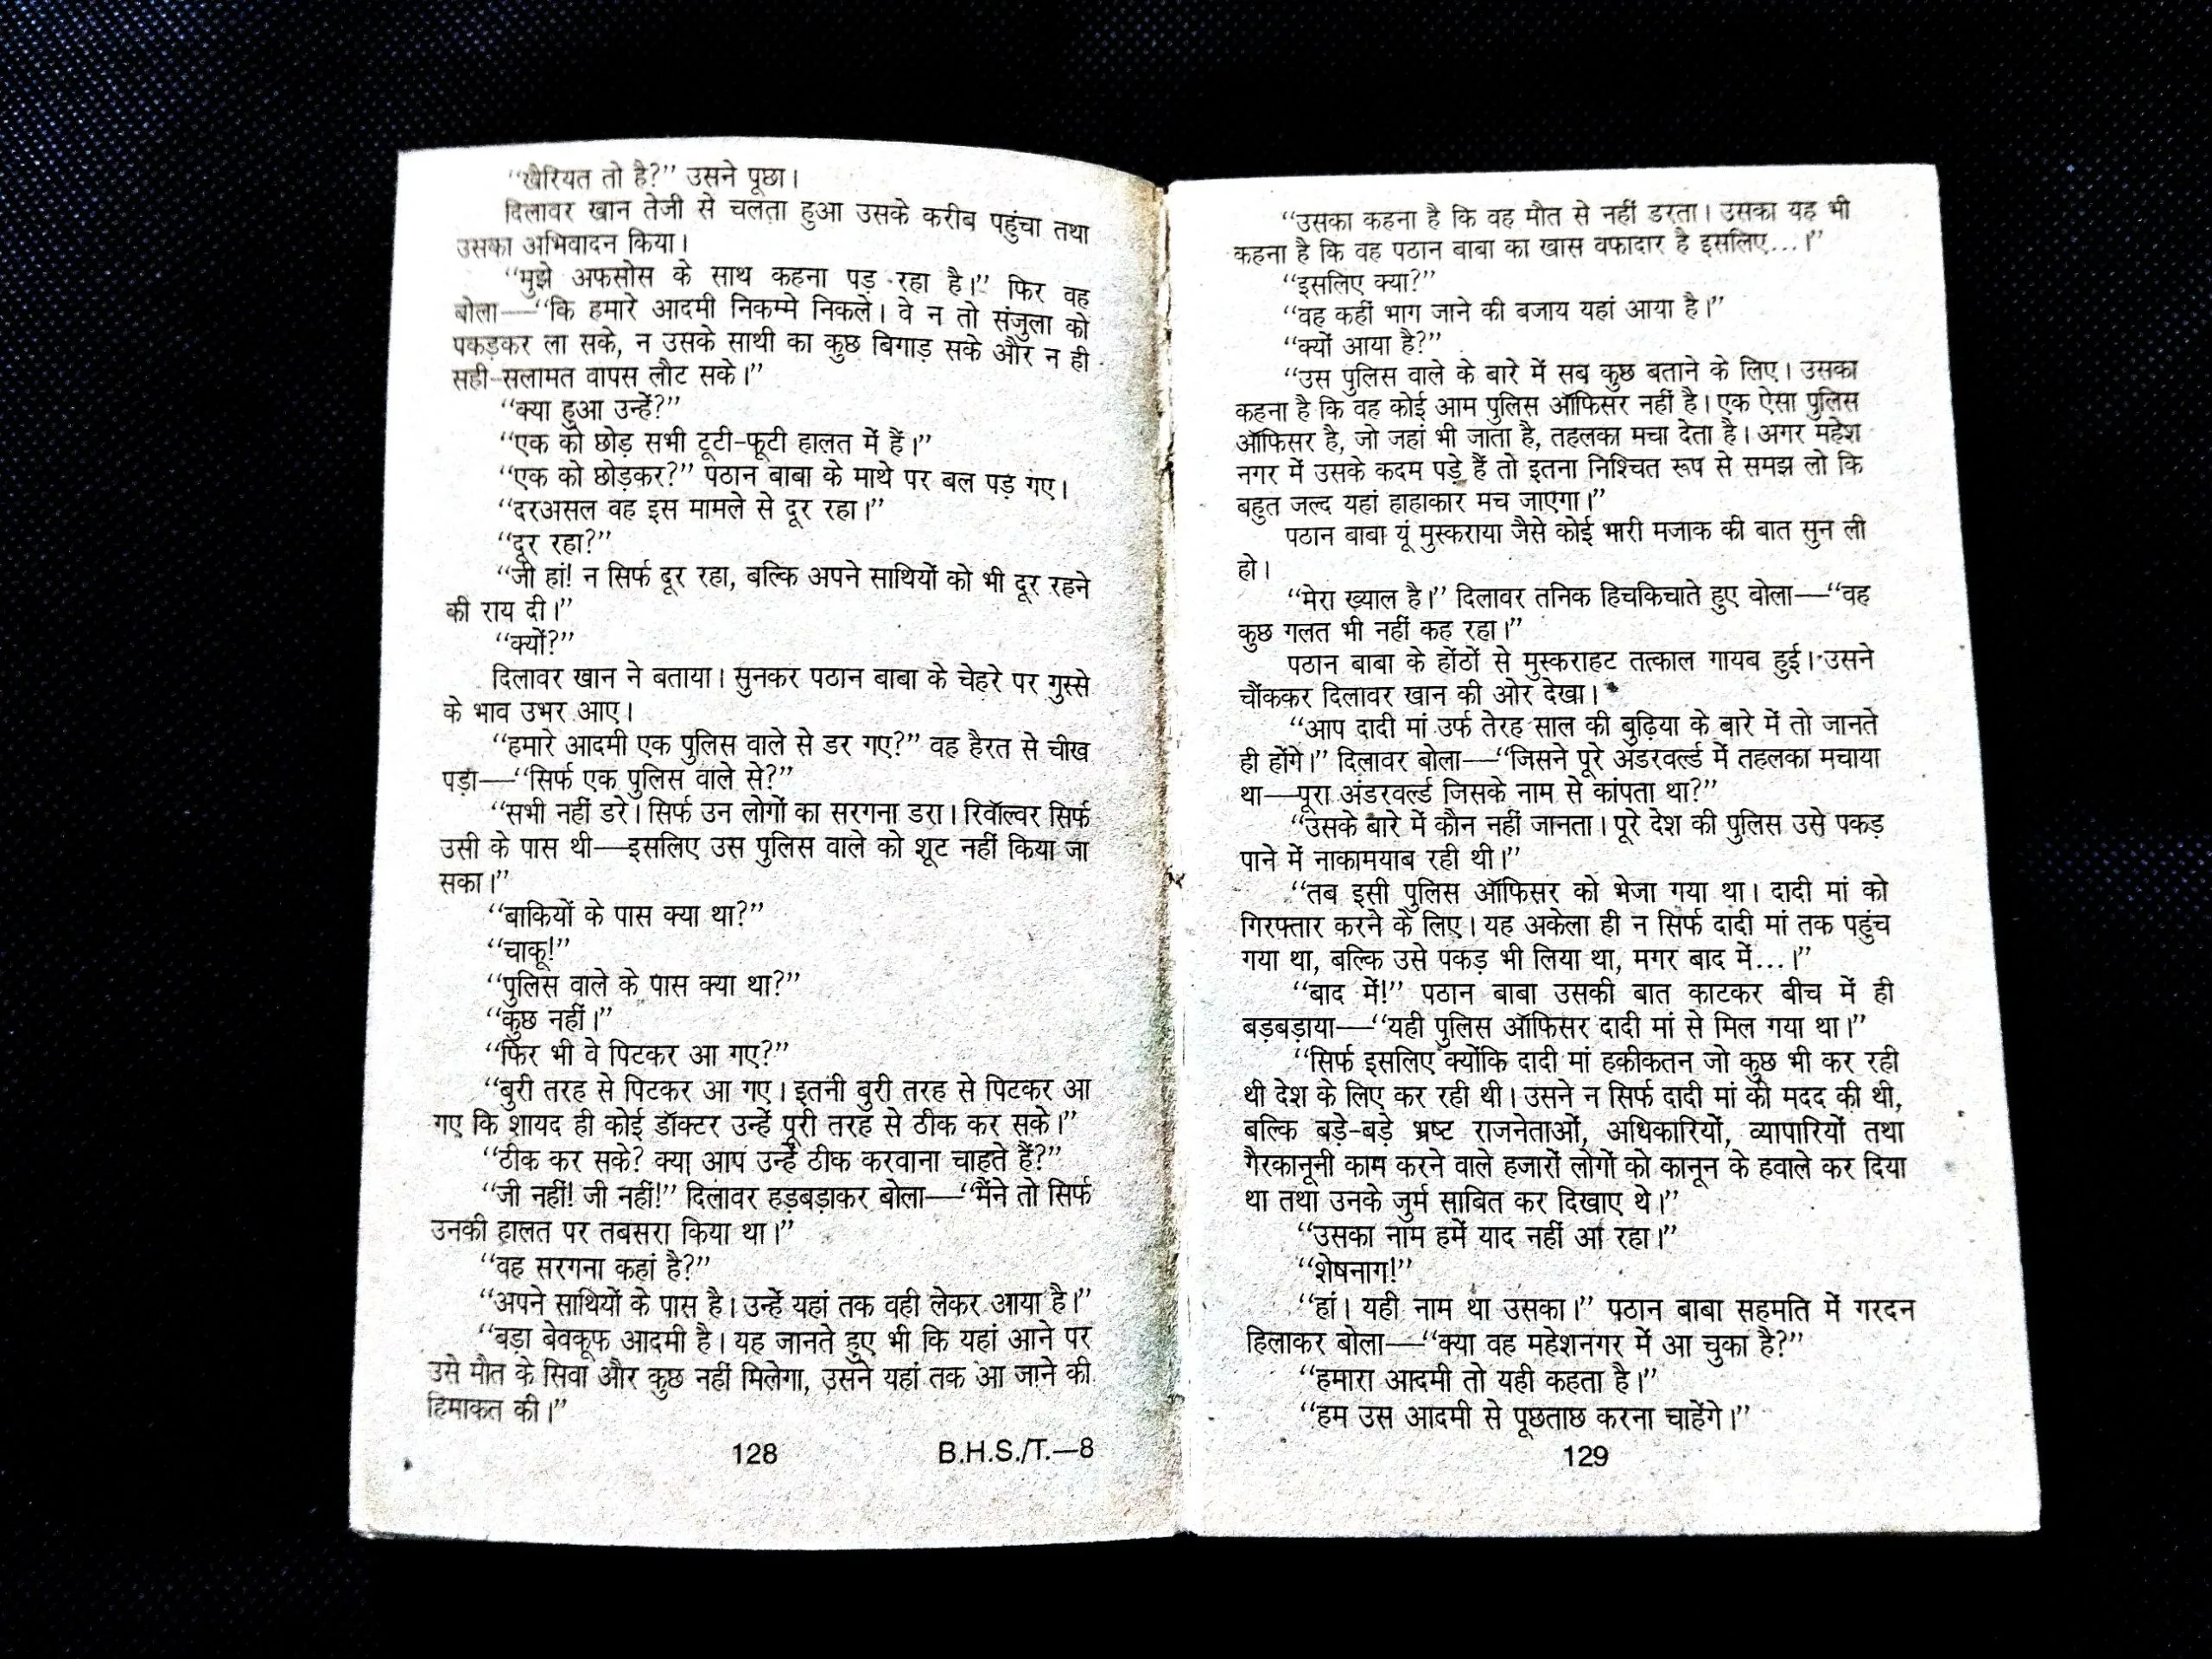 “खैरियत तो है?” उसने पूछा।
दिलावर खान तेजी से चलता हुआ उसके करीब पहुंचा तथा
उसका अभिवादन किया।
“मुझे अफसोस के साथ कहना पड़ रहा है।” फिर वह
बोला—“कि हमारे आदमी निकम्मे निकले। वे न तो संजुला को
पकड़कर ला सके, न उसके साथी का कुछ बिगाड़ सके और न ही
सही-सलामत वापस लौट सके।”
“क्या हुआ उन्हें?”
“एक को छोड़ सभी टूटी-फूटी हालत में हैं।”
“एक को छोड़कर?” पठान बाबा के माथे पर बल पड़ गए।
“दरअसल वह इस मामले से दूर रहा।”
“दूर रहा?”
“जी हां! न सिर्फ दूर रहा, बल्कि अपने साथियों को भी दूर रहने
की राय दी।”
“क्यों?”
दिलावर खान ने बताया। सुनकर पठान बाबा के चेहरे पर गुस्से
के भाव उभर आए।
“हमारे आदमी एक पुलिस वाले से डर गए?” वह हैरत से चीख
पड़ा—“सिर्फ एक पुलिस वाले से?”
“सभी नहीं डरे। सिर्फ उन लोगों का सरगना डरा। रिवॉल्वर सिर्फ
उसी के पास थी—इसलिए उस पुलिस वाले को शूट नहीं किया जा
सका।”
“बाकियों के पास क्या था?”
“चाकू!”
“पुलिस वाले के पास क्या था?”
“कुछ नहीं।”
“फिर भी वे पिटकर आ गए?”
“बुरी तरह से पिटकर आ गए। इतनी बुरी तरह से पिटकर आ
गए कि शायद ही कोई डॉक्टर उन्हें पूरी तरह से ठीक कर सके।”
“ठीक कर सके? क्या आप उन्हें ठीक करवाना चाहते हैं?”
“जी नहीं! जी नहीं!” दिलावर हड़बड़ाकर बोला—“मैंने तो सिर्फ
उनकी हालत पर तबसरा किया था।”
“वह सरगना कहां है?”
“अपने साथियों के पास है। उन्हें यहां तक वही लेकर आया है।”
“बड़ा बेवकूफ आदमी है। यह जानते हुए भी कि यहां आने पर
उसे मौत के सिवा और कुछ नहीं मिलेगा, उसने यहां तक आ जाने की
हिमाकत की।”
128 B.H.S./T.—8
“उसका कहना है कि वह मौत से नहीं डरता। उसका यह भी
कहना है कि वह पठान बाबा का खास वफादार है इसलिए...।”
“इसलिए क्या?”
“वह कहीं भाग जाने की बजाय यहां आया है।”
“क्यों आया है?”
“उस पुलिस वाले के बारे में सब कुछ बताने के लिए। उसका
कहना है कि वह कोई आम पुलिस ऑफिसर नहीं है। एक ऐसा पुलिस
ऑफिसर है, जो जहां भी जाता है, तहलका मचा देता है। अगर महेश
नगर में उसके कदम पड़े हैं तो इतना निश्चित रूप से समझ लो कि
बहुत जल्द यहां हाहाकार मच जाएगा।”
पठान बाबा यूं मुस्कराया जैसे कोई भारी मजाक की बात सुन ली
हो।
“मेरा ख्याल है।” दिलावर तनिक हिचकिचाते हुए बोला—“वह
कुछ गलत भी नहीं कह रहा।”
पठान बाबा के होंठों से मुस्कराहट तत्काल गायब हुई। उसने
चौंककर दिलावर खान की ओर देखा।
“आप दादी मां उर्फ तेरह साल की बुढ़िया के बारे में तो जानते
ही होंगे।” दिलावर बोला—“जिसने पूरे अंडरवर्ल्ड में तहलका मचाया
था—पूरा अंडरवर्ल्ड जिसके नाम से कांपता था?”
“उसके बारे में कौन नहीं जानता। पूरे देश की पुलिस उसे पकड़
पाने में नाकामयाब रही थी।”
“तब इसी पुलिस ऑफिसर को भेजा गया था। दादी मां को
गिरफ्तार करने के लिए। यह अकेला ही न सिर्फ दादी मां तक पहुंच
गया था, बल्कि उसे पकड़ भी लिया था, मगर बाद में...।”
“बाद में!” पठान बाबा उसकी बात काटकर बीच में ही
बड़बड़ाया—“यही पुलिस ऑफिसर दादी मां से मिल गया था।”
“सिर्फ इसलिए क्योंकि दादी मां हकीकतन जो कुछ भी कर रही
थी देश के लिए कर रही थी। उसने न सिर्फ दादी मां की मदद की थी,
बल्कि बड़े-बड़े भ्रष्ट राजनेताओं, अधिकारियों, व्यापारियों तथा
गैरकानूनी काम करने वाले हजारों लोगों को कानून के हवाले कर दिया
था तथा उनके जुर्म साबित कर दिखाए थे।”
“उसका नाम हमें याद नहीं आ रहा।”
“शेषनाग!”
“हां। यही नाम था उसका।” पठान बाबा सहमति में गरदन
हिलाकर बोला—“क्या वह महेशनगर में आ चुका है?”
“हमारा आदमी तो यही कहता है।”
“हम उस आदमी से पूछताछ करना चाहेंगे।”
129